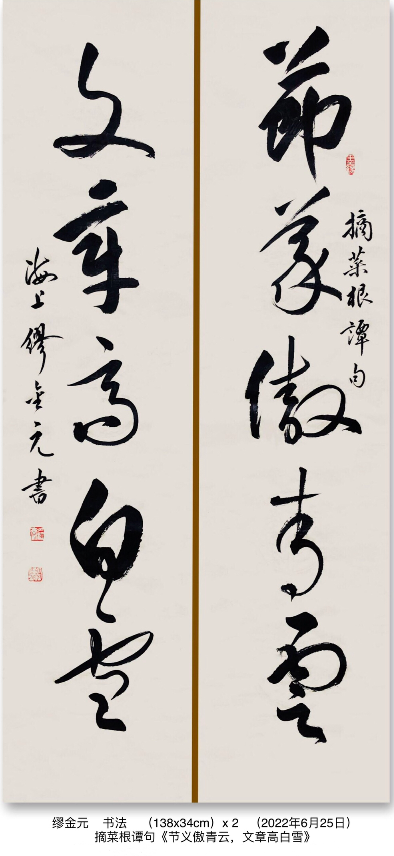 節義傲青雲
摘菜根譚句
文章高白雪
海上繆金元書
缪金元 书法 （138x34cm）x 2 （2022年6月25日）
摘菜根谭句《节义傲青云，文章高白雪》